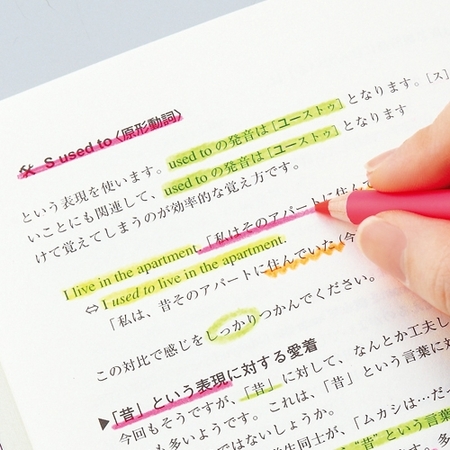 S used to 〈原形動詞〉
という表現を使います。used to の発音は [ユーストゥ] となります。[ス]
いことにも関連して、used to の発音は [ユーストゥ] となります
けて覚えてしまうのが効率的な覚え方です。
I live in the apartment.「私はそのアパートに住んで
⇔ I used to live in the apartment.
「私は、昔そのアパートに住んでいた (今
この対比で感じをしっかりつかんでください。
▶「昔」という表現に対する愛着
今回もそうですが、「昔」に対して、なんとか工夫し
も多いようです。これは、「昔」という言葉に対
ではないでしょうか。
生同士が、「ムカシは…だっ
"昔" という言葉